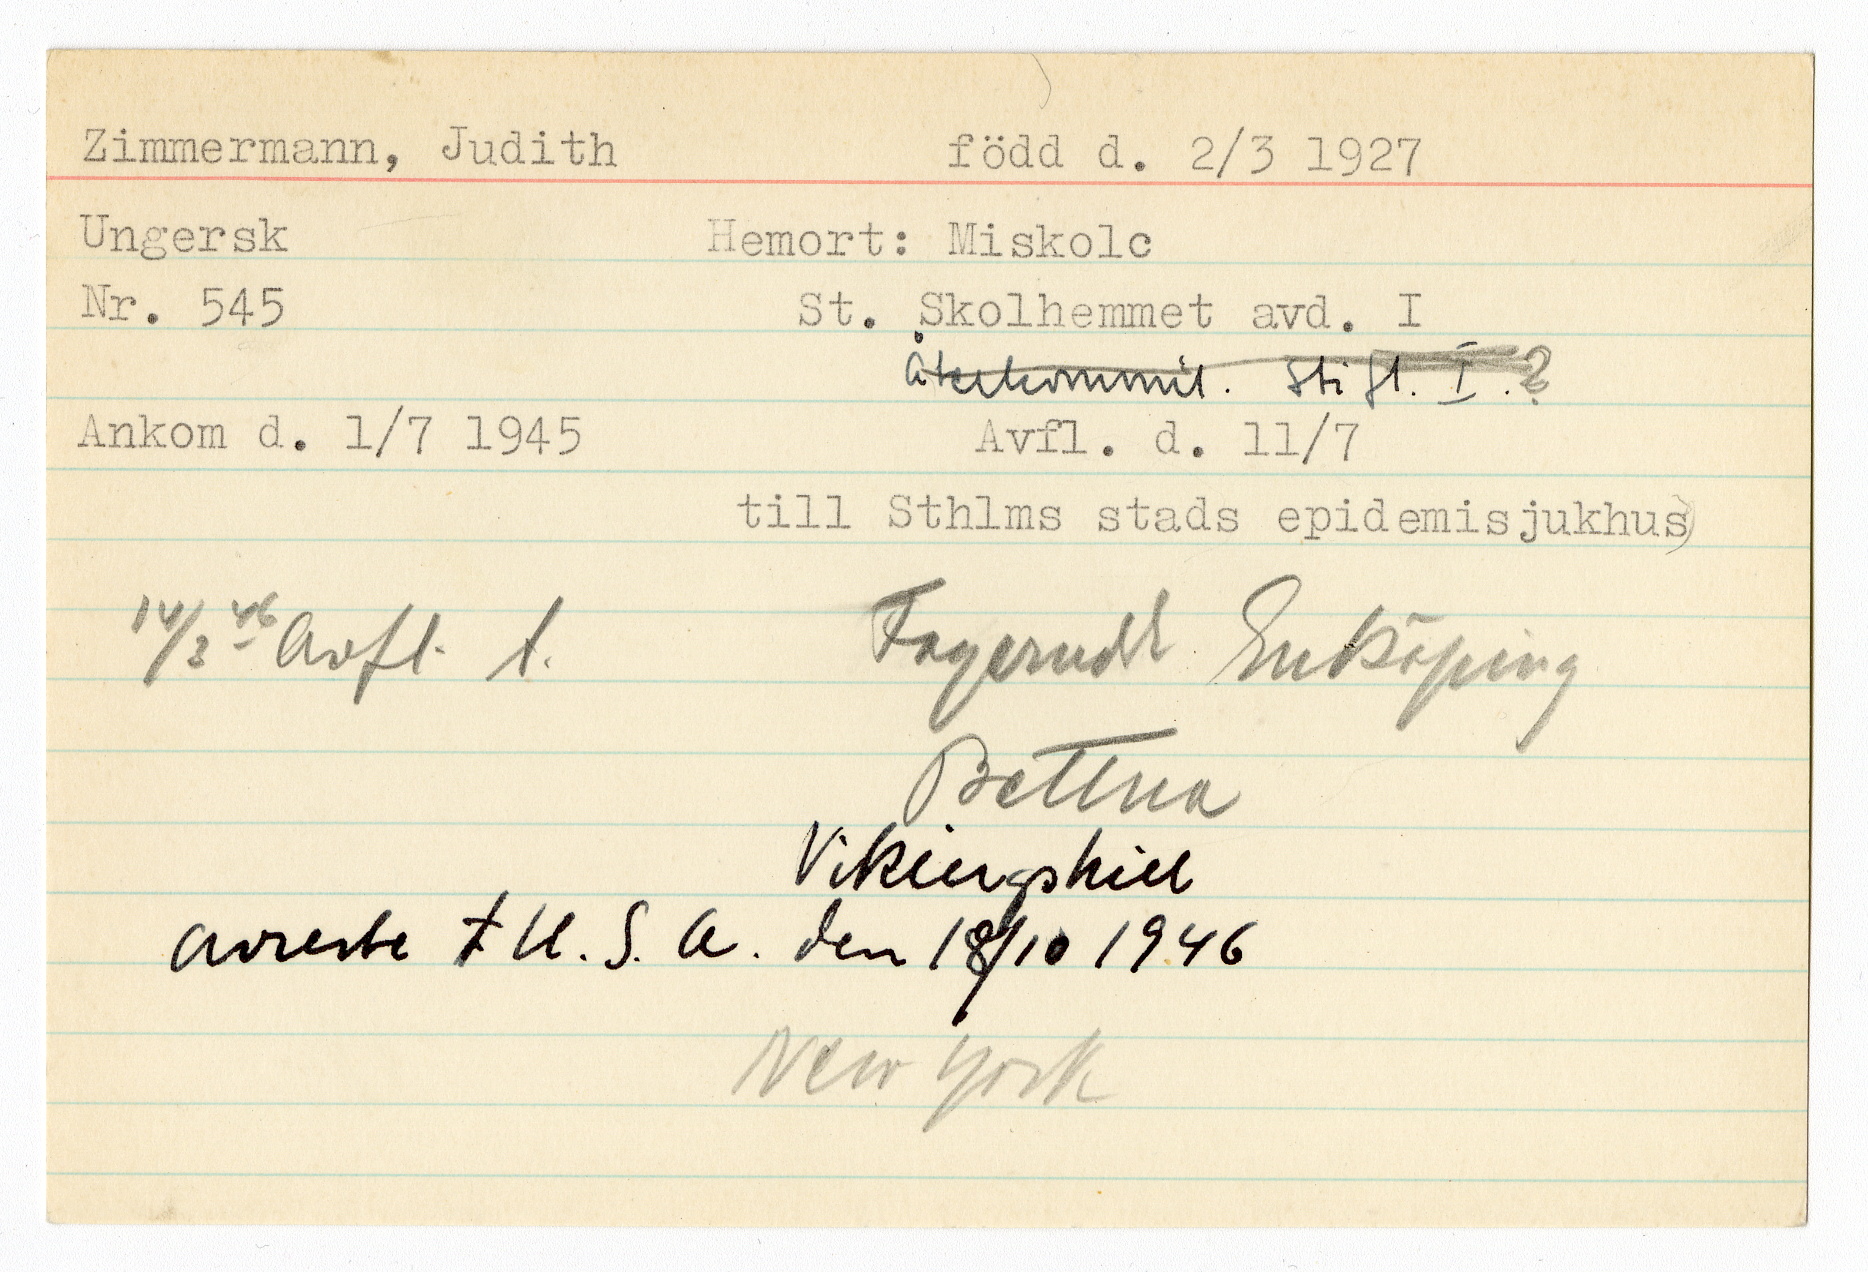 Zimmermann, Judith född d. 2/3 1927
Ungersk Hemort: Miskolc
Nr. 545 St. Skolhemmet avd. I
återkommit. Stigl. I.?
Ankom d. 1/7 1945 Avfl. d. 11/7
till Sthlms stads epidemisjukhus)
14/3 46 Avfl. t. Fagerudd Enköping
Bettna
Vikingshill
avreste t U.S.A. den 18/10 1946
New York